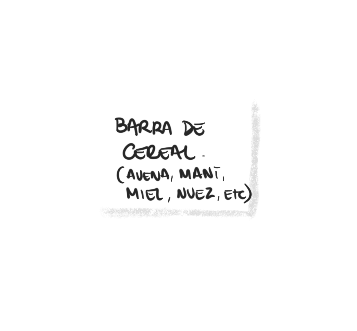 BARRA DE
CEREAL.
(AVENA, MANÍ,
MIEL, NUEZ, Etc)